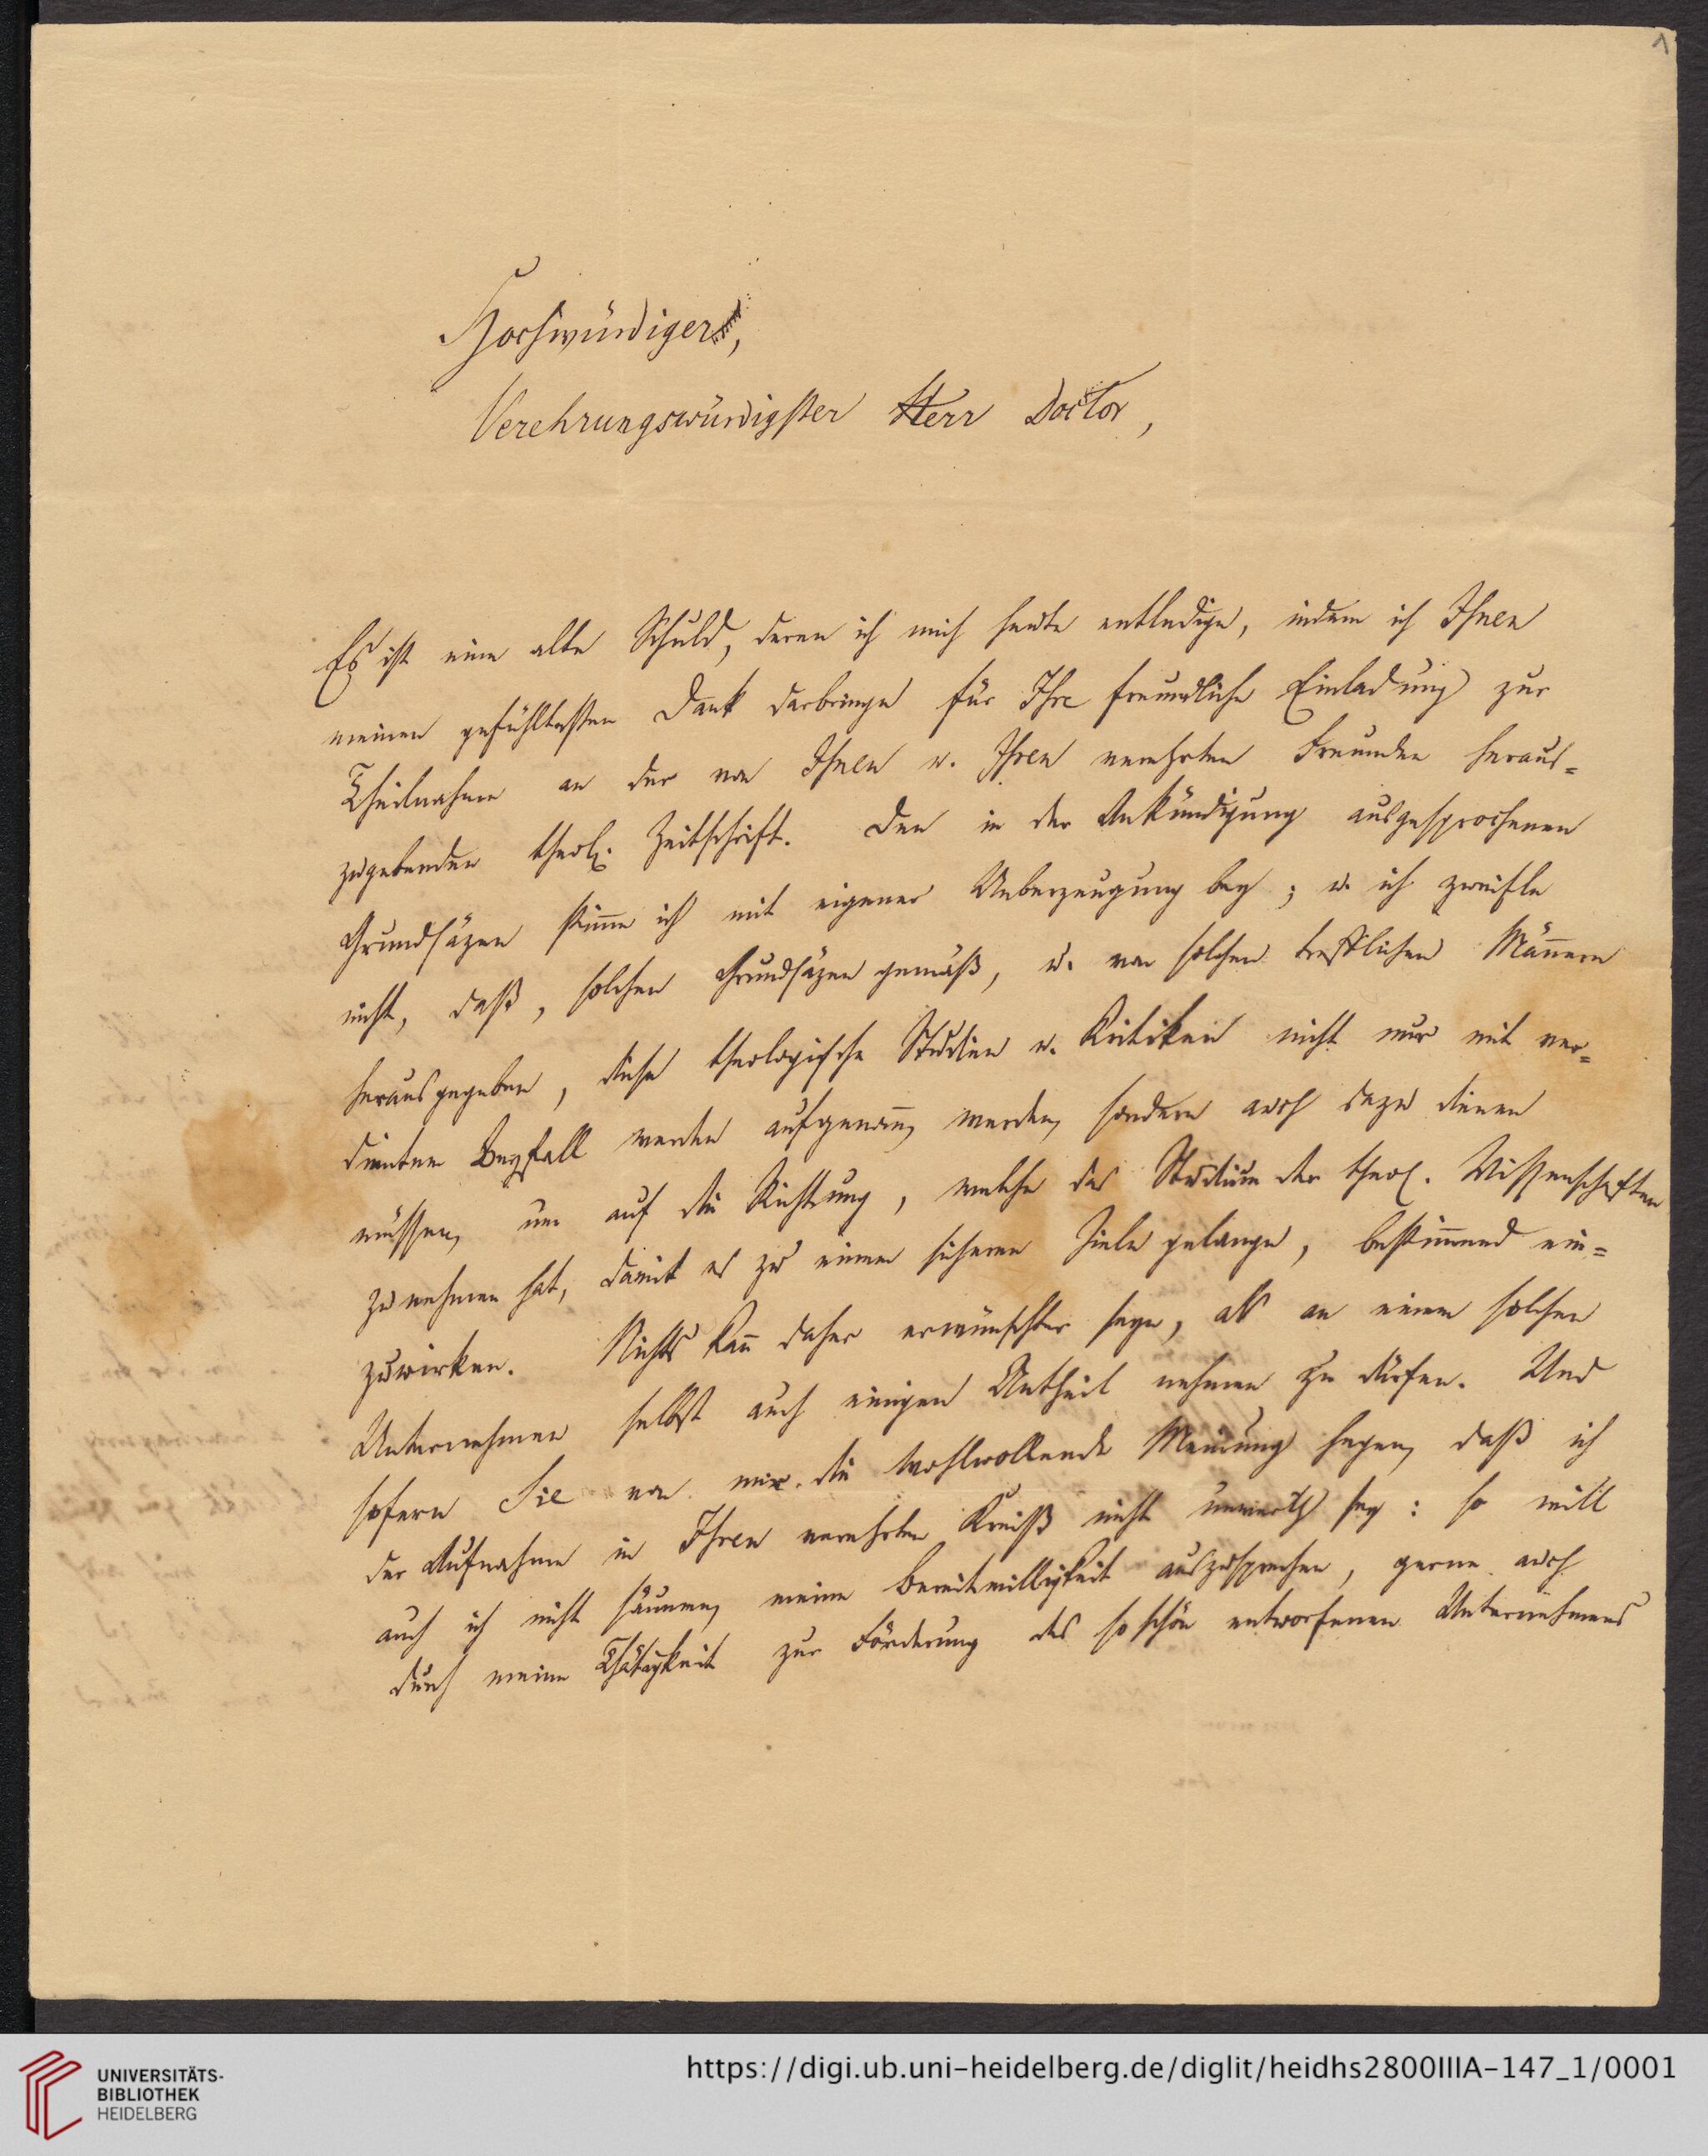 1
Hochwürdiger,
Verehrungswürdigster Herr Doctor,
Es ist eine alte Schuld, deren ich mich heute entledige, indem ich Ihnen
meinen gefühltesten Dank darbringe für Ihre freundliche Einladung zur
Theilnahme an der von Ihnen u. Ihren verehrten Freunden heraus=
zugebenden theol. Zeitschrift. Den in der Ankündigung ausgesprochenen
Grundsäzen stim̄e ich mit eigener Ueberzeugung bey; u. ich zweifle
nicht, daß, solchen Grundsäzen gemäß, u. von solchen trefflichen Män̄ern
herausgegeben, diese theologische Studien u. Kritiken nicht nur mit ver=
dientem Beyfall werden aufgenom̄en werden, sondern auch dazu dienen
müssen, um auf die Richtung, welche das Studium der theol. Wissenschaften
zu nehmen hat, damit es zu einem sicheren Ziele gelange, bestim̄end ein=
zuwirken. Nichts kan̄ daher erwünschter seyn, als an einem solchen
Unternehmen selbst auch einigen Antheil nehmen zu dürfen. Und
sofern Sie von mir die wohlwollende Meinung hegen, daß ich
der Aufnahme in Ihren verehrten Kreiß nicht unwerth sey: so will
auch ich nicht säumen, meine Bereitwilligkeit auszusprechen, gerne auch
durch meine Thätigkeit zur Förderung des so schön entworfenen Unternehmens
UNIVERSITÄTS-
BIBLIOTHEK
HEIDELBERG
https://digi.ub.uni-heidelberg.de/diglit/heidhs2800IIIA-147_1/0001